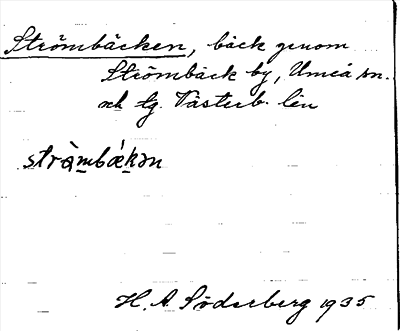 Strömbäcken, bäck genom
Strömbäck by, Umeå sn.
och tg. Västerb. län
stràmbǽkən
H. A. Söderberg 1935